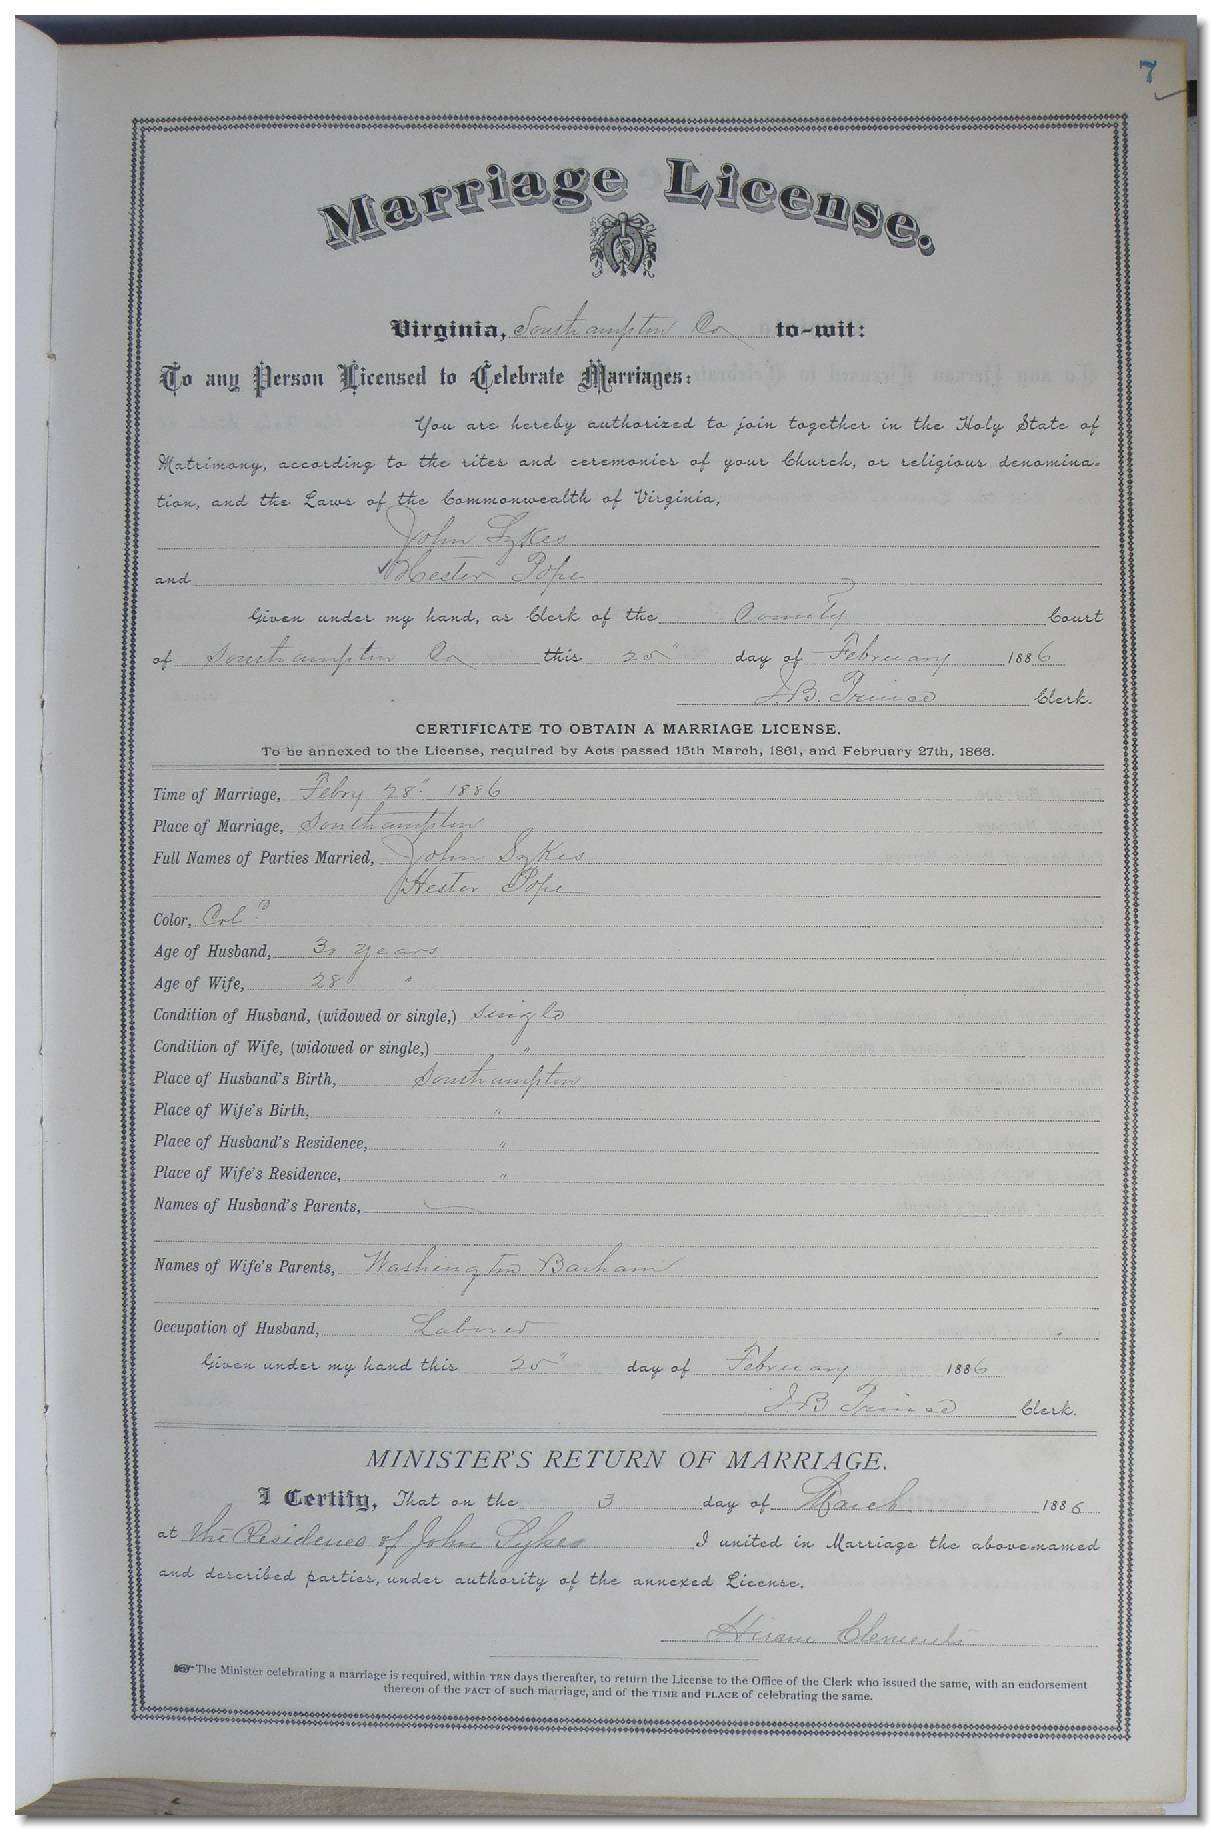 7
Marriage License.
Virginia, Southampton Co to-wit:
To any Person Licensed to Celebrate Marriages:
You are hereby authorized to join together in the Holy State of
Matrimony, according to the rites and ceremonies of your Church, or religious denomina-
tion, and the Laws of the Commonwealth of Virginia,
John Sykes
and Hester Pope
Given under my hand, as Clerk of the County Court
of Southampton Co this 25" day of February 1886
J.B. Prince Clerk.
CERTIFICATE TO OBTAIN A MARRIAGE LICENSE.
To be annexed to the License, required by Acts passed 15th March, 1861, and February 27th, 1866.
Time of Marriage, Febry 28" 1886
Place of Marriage, Southampton
Full Names of Parties Married, John Sykes
Hester Pope
Color, Cold
Age of Husband, years
Age of Wife, 28 "
Condition of Husband, (widowed or single,) single
Condition of Wife, (widowed or single,) "
Place of Husband's Birth, Southampton
Place of Wife's Birth, "
Place of Husband's Residence, "
Place of Wife's Residence, "
Names of Husband's Parents,
Names of Wife's Parents, Washington Barham
Occupation of Husband, Laborer
Given under my hand this 25" day of February 1886
J.B Prince Clerk.
MINISTER'S RETURN OF MARRIAGE.
I Certify, That on the 3 day of March 1886
at the Residence of John Sykes I united in Marriage the above-named
and described parties, under authority of the annexed License.
Hiram Clements
The Minister celebrating a marriage is required, within TEN days thereafter, to return the License to the Office of the Clerk who issued the same, with an endorsement
thereon of the FACT of such marriage, and of the TIME and PLACE of celebrating the same.